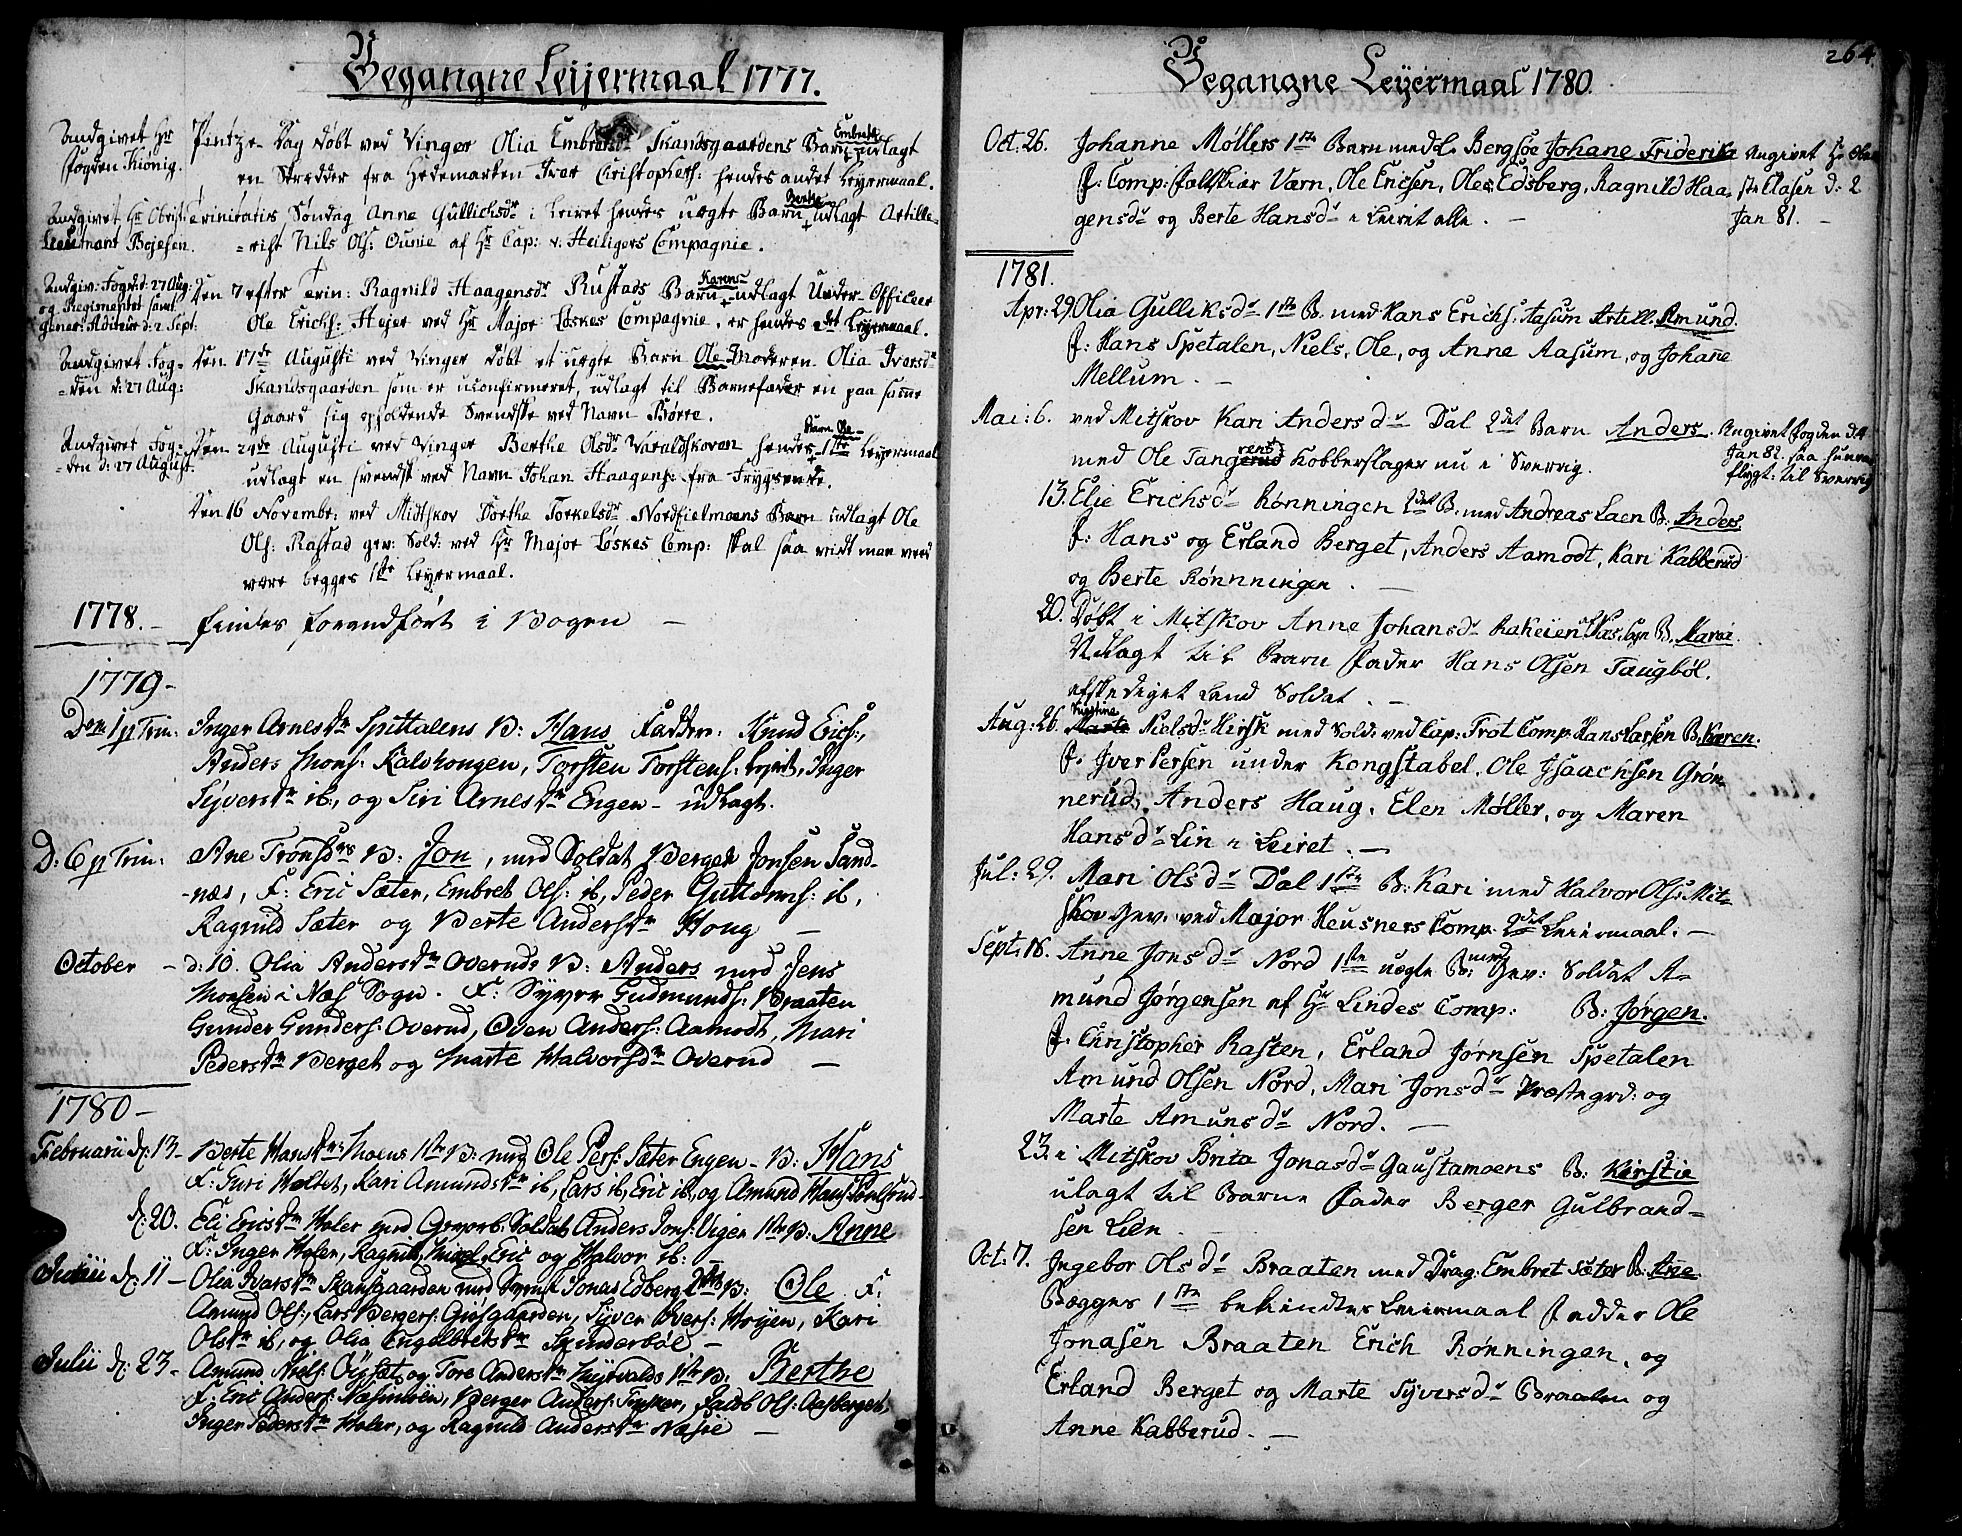 Begangne Leijermaal 1777.
Andgivet Hr Fogden Kiönig.
Pintze-Dag døbt ved Vinger Olia Embretsdr Skandsgaardens Barn Embret udlagt
en Skrædder fra Hedemarken Iver Christophers: hendes andet Leyermaal.
Andgivet Hr Obrist Lieutnant Bojesen.
Trinitatis Søndag Anne Gullichsdr i Leiret hendes uægte Barn Berthe udlagt Artille-
-rist Nils Ols: Ounie af Hr Cap: v: Heiligers Compagnie.
Andgiv: Fogd: d: 27 Aug: og Regimentet samt Gener: Aditeur d: 2 Sept:
Den 7 efter Trin: Ragnild Haagensdr Rustads Barn Karen udlagt Under-Officeer
Ole Erichs: Hejer ved Hr Major Løskes Compagnie. er hendes 2det Leyermaal.
Andgivet Fog-
-den d: 27 Aug:
Den 17de Augusti ved Vinger døbt et uægte Barn Ole Moderen Olia Ivarsdr
Skandsgaarden som er uconfirmeret, udlagt til Barnefader en paa samme
Gaard sig opholdende Svendske ved Navn Börre.
Andgivet Fog-
-den d: 27 August.
Den 24de Augusti ved Vinger Berthe Olsdr Varaldskovan hendes Barn Ole 1ste Leyermaal
udlagt en svensk ved Navn Johan Haagens: fra Frygsende.
Den 16 Novembr: ved Midtskov Dorthe Torkelsdr Nordfielmoens Barn udlagt Ole
Ols: Rastad gev: Sold: ved Hr Major Løskes Comp: skal saa vidt man veed
være begges 1ste Leyermaal.
1778. - findes forandført i Bogen -
1779 -
Dom 1 p Trin: Inger Arnesdr Spittalens B: Hans Faddere: Knud Erics:,
Anders Mons: Kalshougen, Torsten Torstens: Lejret, Inger
Syversdr ib:, og Siri Arnesdr Engen - udlagt.
D: 6 p Trin: Ane Tronsdrs B: Jon, med Soldat Berger Jonsen Sand-
-næs, F: Eric Sæter, Embret Ols: ib, Peder Guttorms: ib,
Ragnild Sæter og Berte Andersdr Houg -
October - d: 10. Olia Andersdr Overuds B: Anders med Jens
Monsen i Næs Sogn. F: Syver Gudmunds: Braaten
Gunder Gunders: Overud, Oven Anders: Aamodt, Mari
Pedersdr Berget og Marte Halvorsdr Overud -
1780 -
Februarii d: 13 - Berte Hansdr: Moens 1ste B: med Ole Pers: Sæter Engen - B: Hans
F: Guri Holtet, Kari Amundsdr ib, Lars ib, Eric ib, og Amund Hans: Poulsrud
d: 20. Eli Ericsdr Holer med Gevorb: Soldat Anders Jons: Viger 1ste B: Anne
F: Inger Holer, Ragnild, Eric og Halvor ib: -
Junii d: 11 - Olia Ivarsdr Skansgaarden med Svensk Jonas Edberg 2det B: Ole F:
Amund Ols:, Lars Bergers: Giøsgaarden, Syver Overs: Moyen, Kari
Olsdr ib, og Olia Engelbretsdr Skinderbøl -
Julii d: 23 - Amund Niels: Olyset og Tore Andersdr Myrvalds 1ste B: Berthe
F: Eric Anders: Næsmoen, Berger Anders:, Jacob Ols: Aasberget,
Inger Pedersdr Holer, og Ragnild Andersdr Næsie -
264
Begangne Leyermaal 1780.
Oct: 26. Johanne Møllers 1ste Barn med L. Bergsøe Johane Friderika
F: Comp: Feltskiær Værn, Ole Ericsen, Oles Edsberg, Ragnild Haa-
gensdr og Berte Hansdr i Leiret alle. -
Angivet Hr Obr
Clasen d: 2
Jan 81. -
1781.
Apr: 29 Olia Gulliksdr 1ste B. med Hans Erichs: Aasum Artill. Amund.
F: Hans Spetalen, Niels, Ole, og Anne Aasum, og Johane
Mellum. -
Mai: 6. ved Mitskov Kari Anders dr Dal 2det Barn Anders
med Ole Tangerud Kobberslager nu i Sverrig.
Angivet fogden d: 4
Jan 82. saa hun var
flygt: til Sverrig
13. Elie Erichsdr Rønningen 2det B. med Andreas Laen B: Anders
F: Hans og Erland Berget, Anders Aamodt, Kari Kabberud
og Berte Rønnningen. -
20. Døbt i Mitskov Anne Johansdr Rakeien B. Mari
Udlagt til Barn Fader Hans Olsen Taugbøl.
afskediget Land Soldat. -
Aug: 26. Kirstine Nielsdr Hirsk med Sold: ved Cap: Frot Comp. Hans Larsen B. Karen.
F: Iver Persen under Kongstabel, Ole Isaachsen Grøn-
nerud, Anders Haug, Elen Møller, og Maren
Hansdr Lin i Leiret. -
Jul: 29. Mari Olsdr Dal 1ste B: Kari med Halvor Ols: Mit-
skov Gev. ved Major Heusners Comp. 2det Leiermaal. -
Sept: 16. Anne Jonsdr Nord 1ste uægte B: med Gev: Soldat A-
mund Jørgensen af Hr Lindes Comp: B: Jørgen.
F: Christopher Rasten, Erland Jørnsen Spetalen
Amund Olsen Nord, Mari Jonsdr Præstegrd: og
Marte Amunsdr Nord. -
23. i Mitskov Brita Jonasdr Gaustamoens B: Kirstie
ulagt til Barne Fader Berger Gulbrand-
sen Lien.
Oct: 7. Ingebor Olsdr Braaten med Drag: Embret Sæter B: Ane
Begges 1ste bekiendte Leiermaal Fadder Ole
Jonasen Braaten Erich Rønningen, og
Erland Berget og Marte Syversdr Braaten og
Anne Kabberud. -